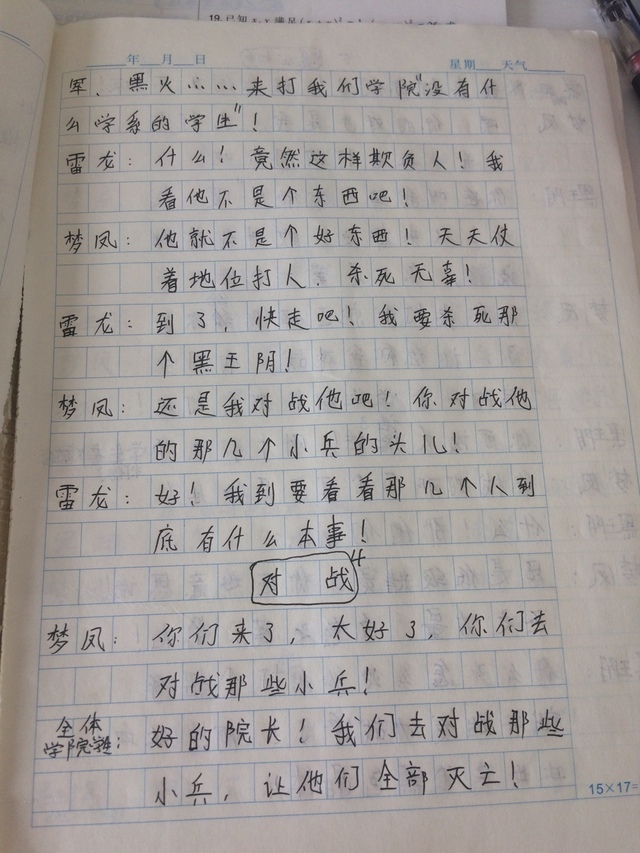 19.已知x,y满足
年 月 日 星期 天气
军、黑火……来打我们学院"没有什
么学系的学生"!
雷龙:什么!竟然这样欺负人!我
看他不是个东西吧!
梦凤:他就不是个好东西!天天仗
着地位打人.杀死无辜!
雷龙:到了,快走吧!我要杀死那
个黑王阴!
梦凤:还是我对战他吧!你对战他
的那几个小兵的头儿!
雷龙:好!我到要看看那几个人到
底有什么本事!
对战4
梦凤:你们来了,太好了,你们去
对战那些小兵!
全体
学院
好的院长!我们去对战那些
小兵,让他们全部灭亡!
15×17=